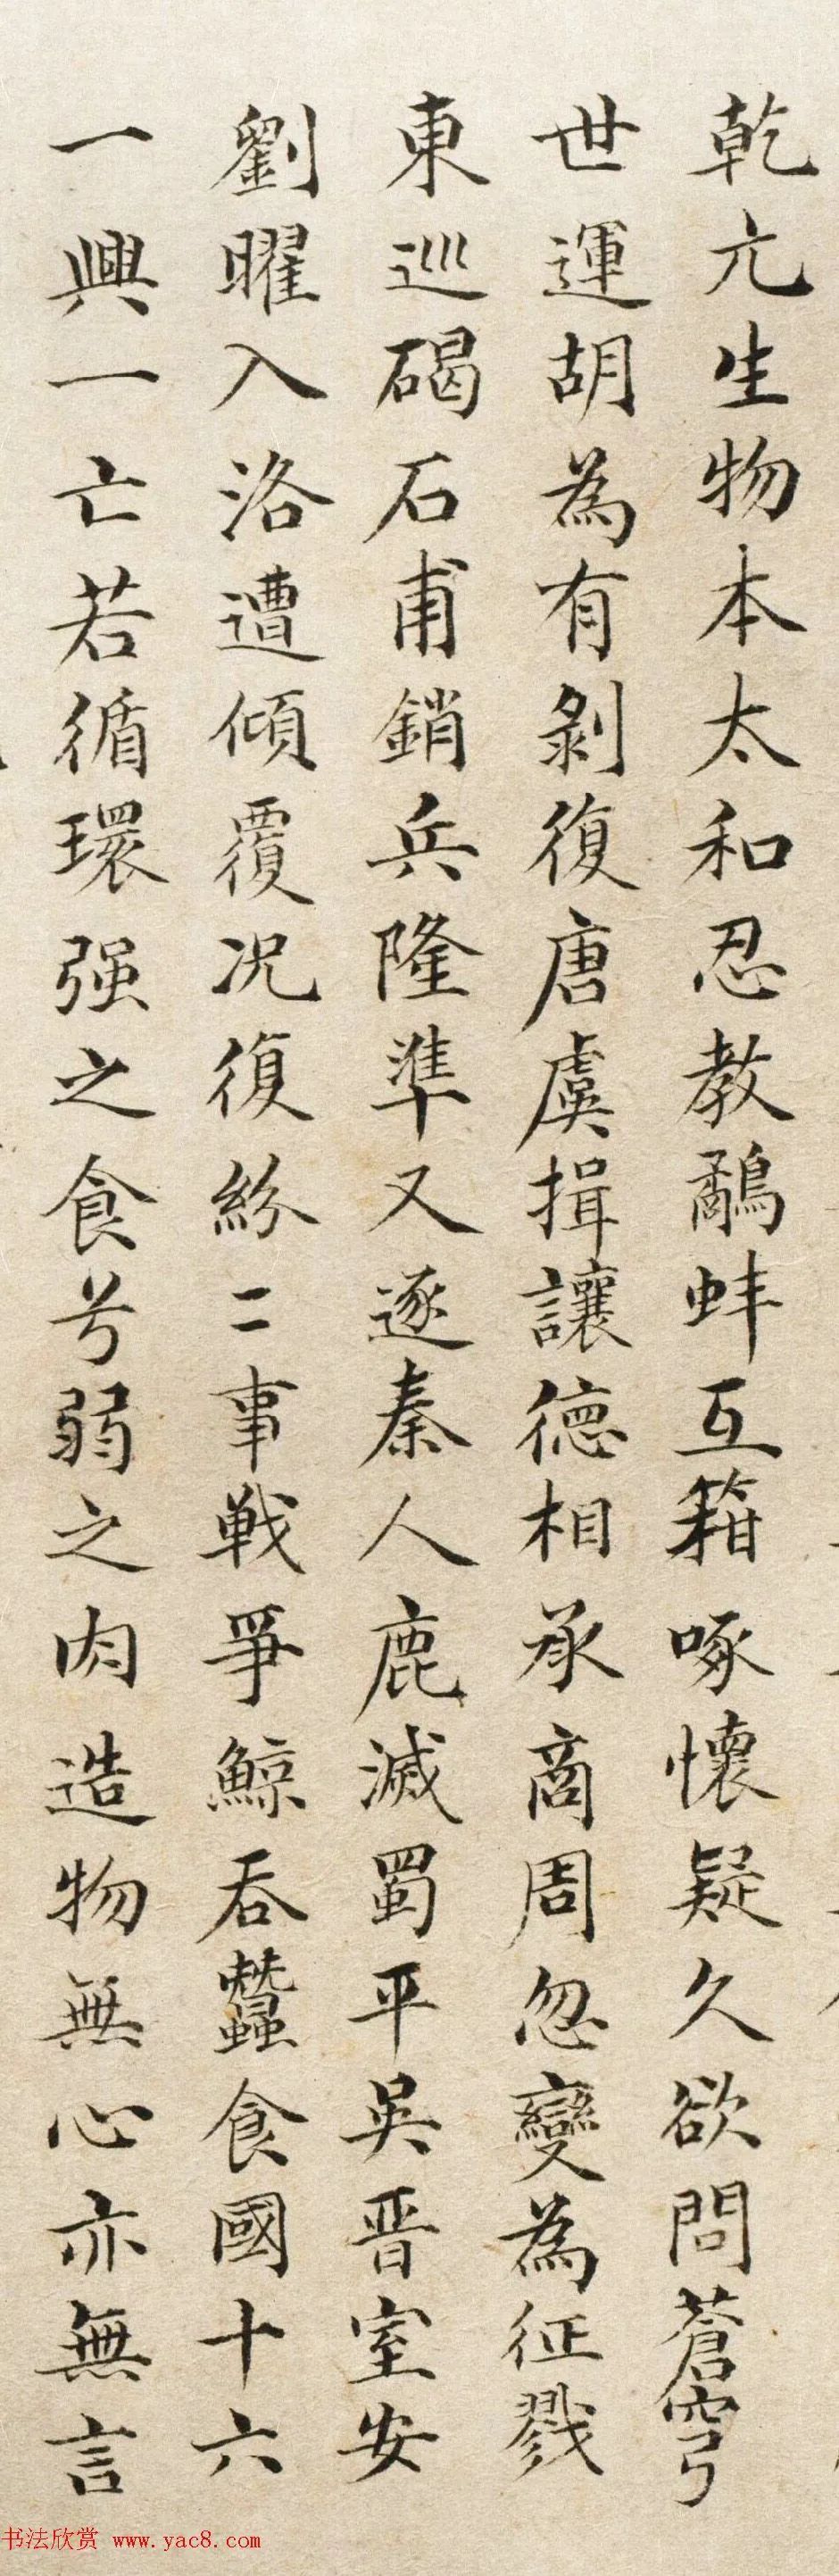 乾亢生物本太和忍教鷸蚌互箝啄懷疑久欲問蒼穹
世運胡為有剝復唐虞揖讓德相承商周忽變為征戮
東巡碣石甫銷兵隆準又逐秦人鹿滅蜀平吳晉室安
劉曜入洛遭傾覆況復紛二事戰爭鯨吞蠶食國十六
一興一亡若循環强之食兮弱之肉造物無心亦無言
书法欣赏 www.yac8.com